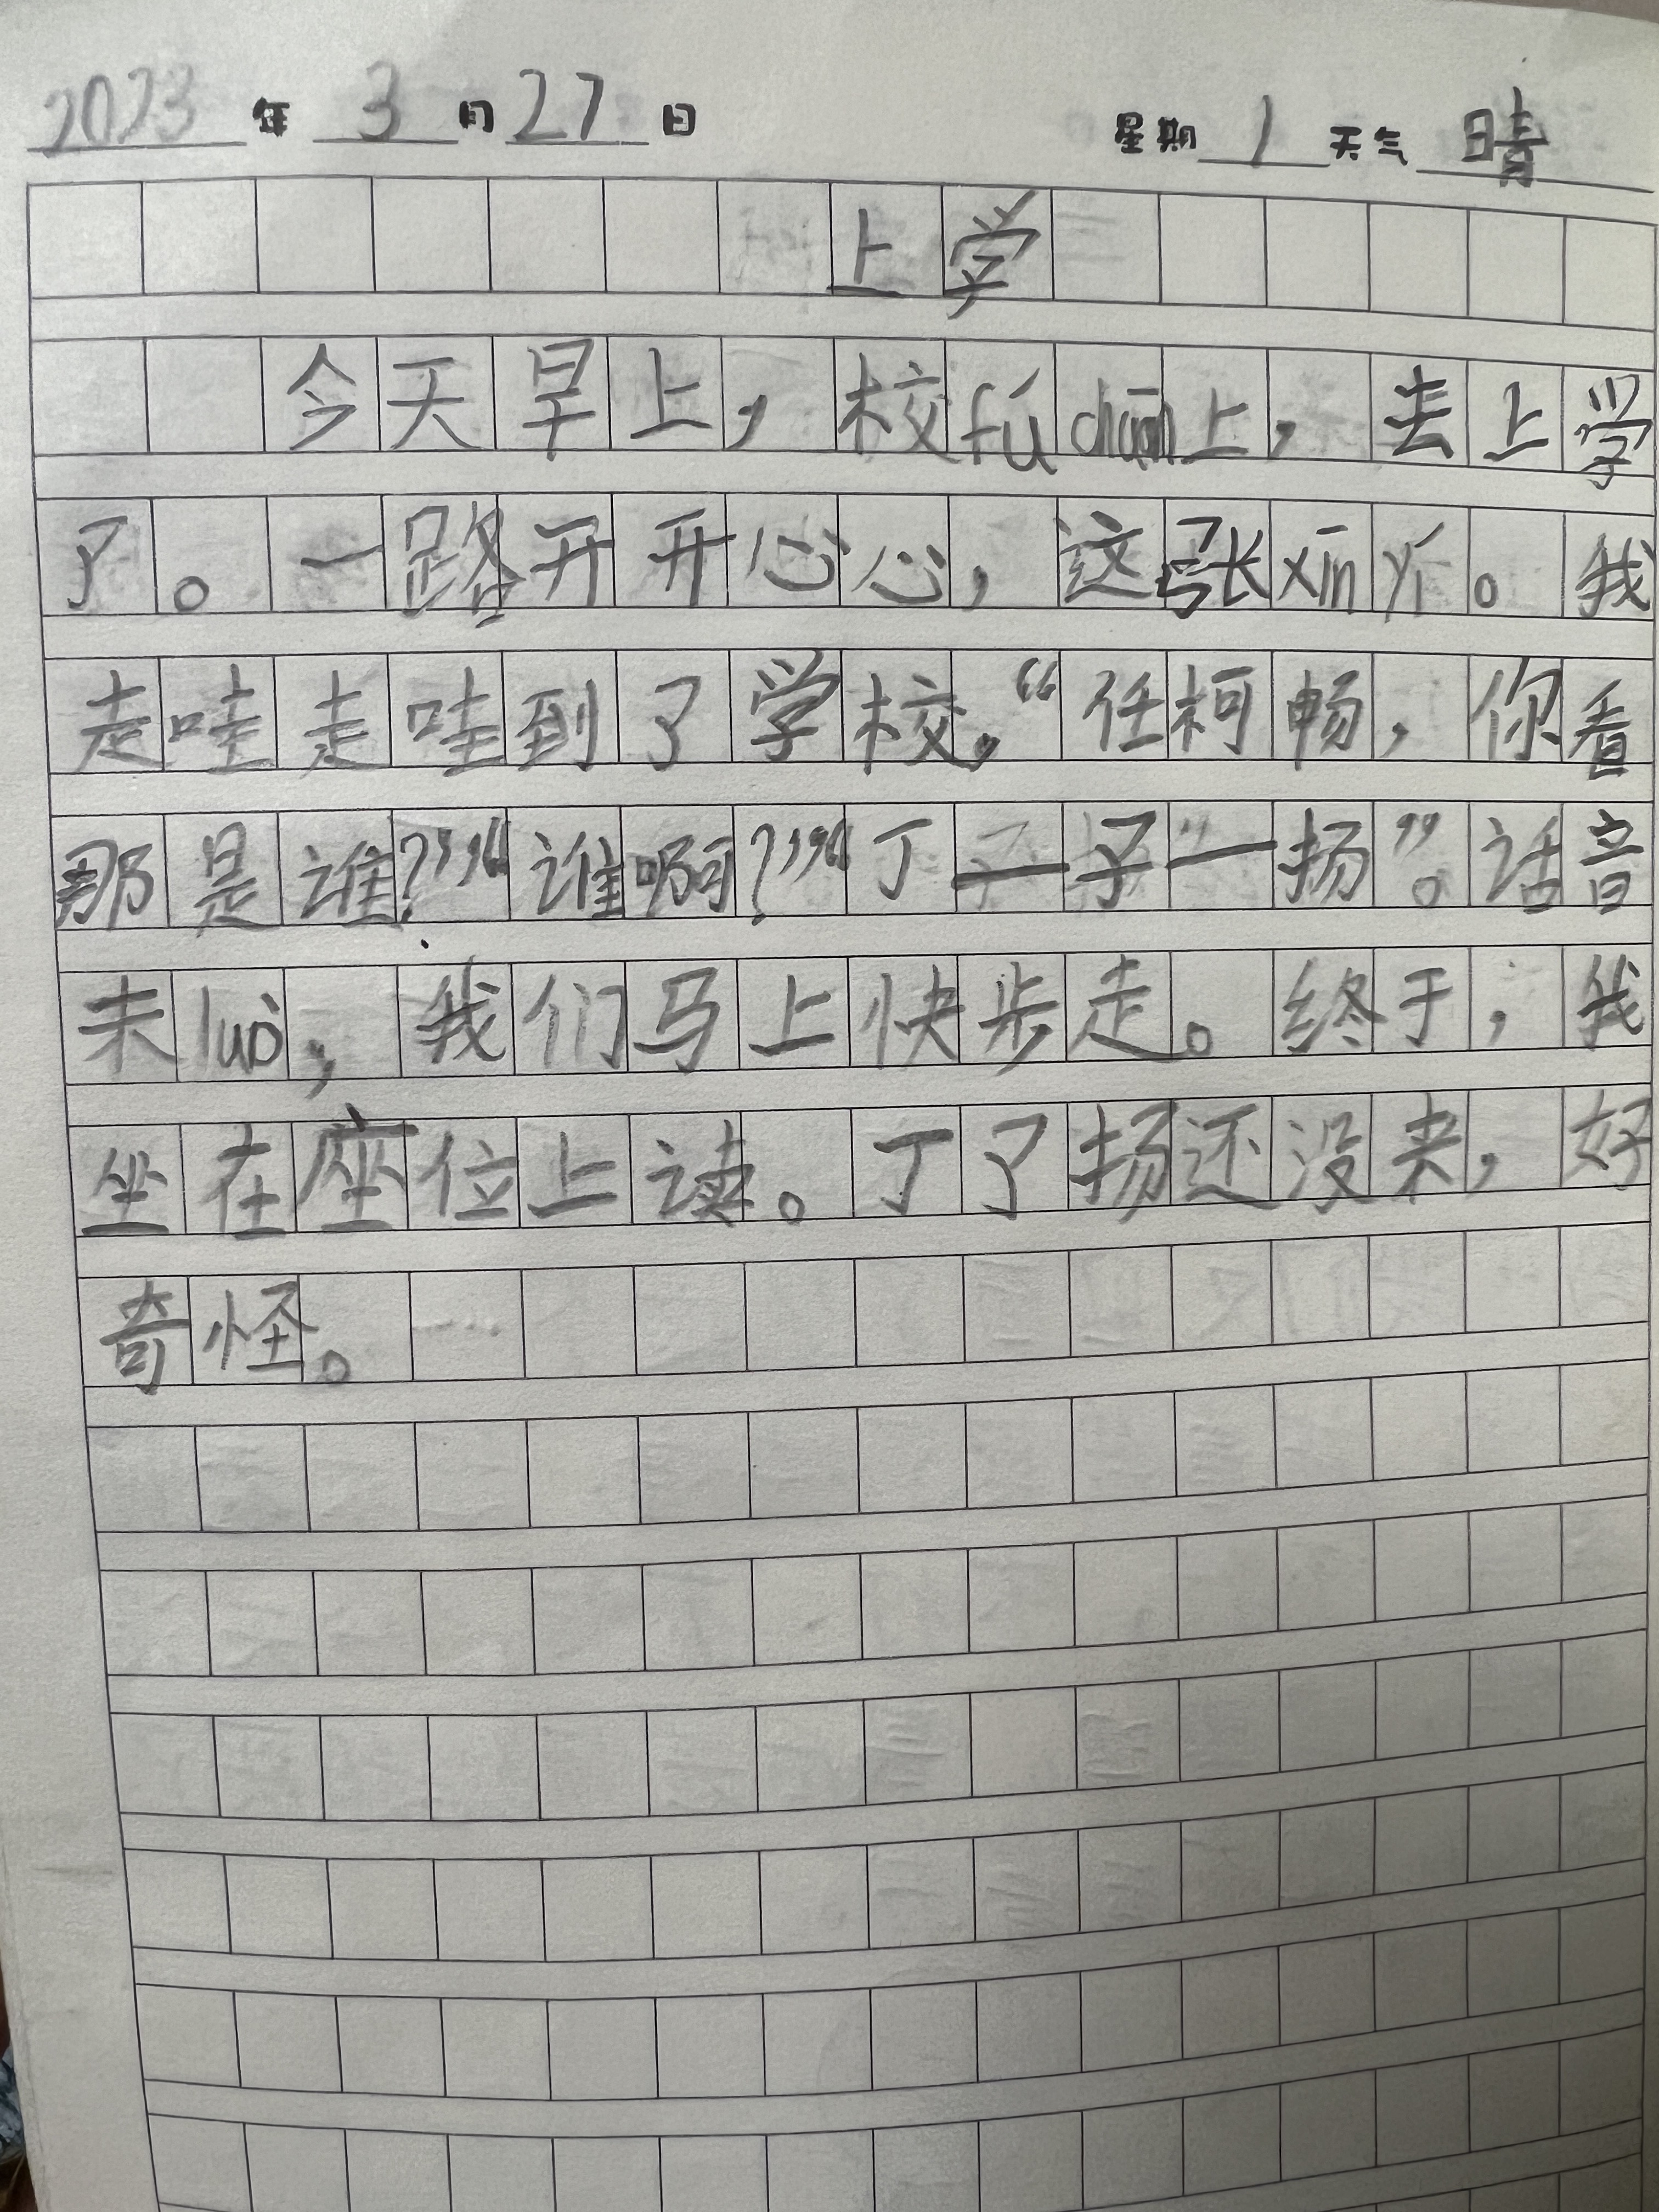 2023年3月27日 星期1天气晴
上学
今天早上，校fú chuān上，去上学
了。一路开开心心，这张xīn yí。我
走哇走哇到了学校。“任柯畅，你看
那是谁？”“谁啊？”“丁一子一扬”。话音
未luò，我们马上快步走。终于，我
坐在座位上读。丁了扬还没来，好
奇怪。